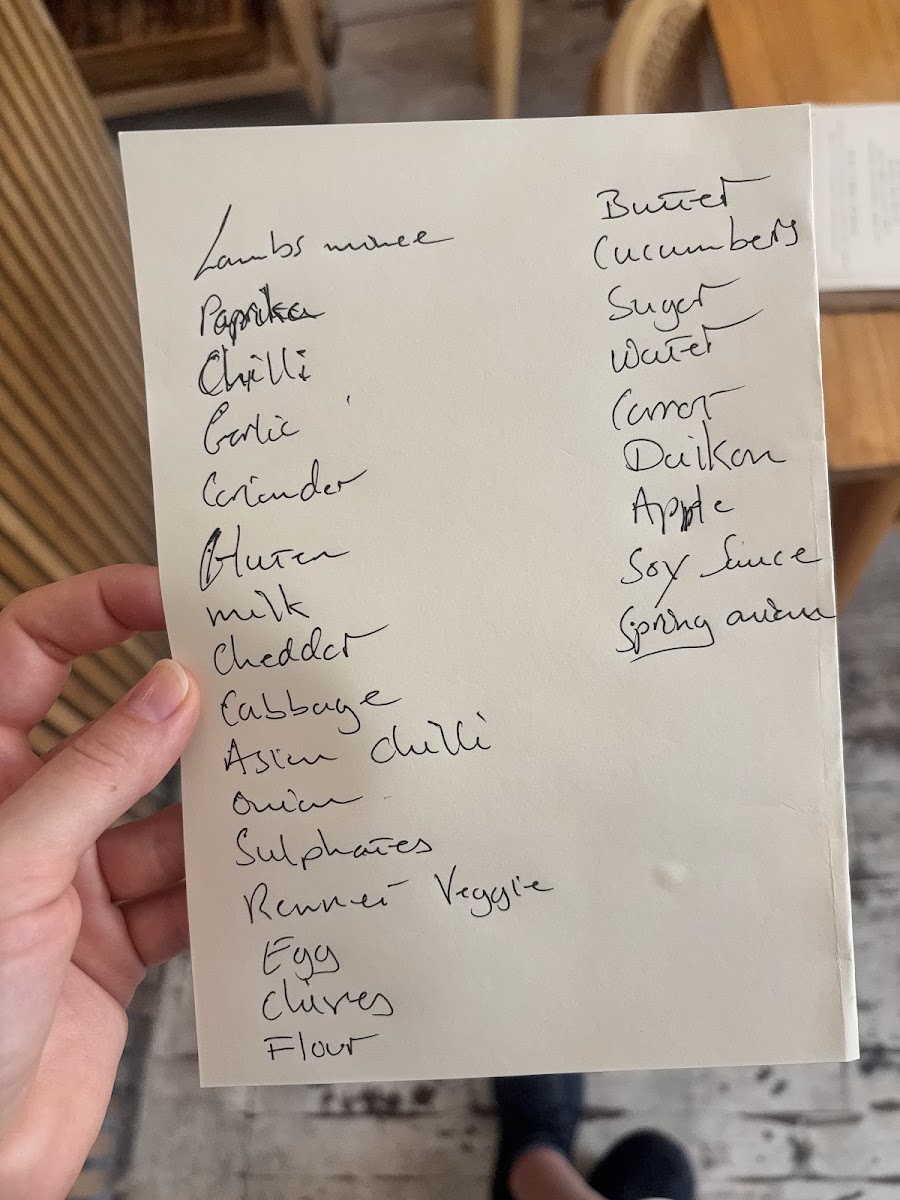 Lambs mince
Paprika
Chilli
Garlic
Coriander
Gluten
milk
Cheddar
Cabbage
Asian chilli
onion
Sulphates
Rennet Veggie
Egg
chives
Flour
Butter
Cucumbers
Sugar
Water
Carrot
Daikon
Apple
Soy Sauce
Spring onion